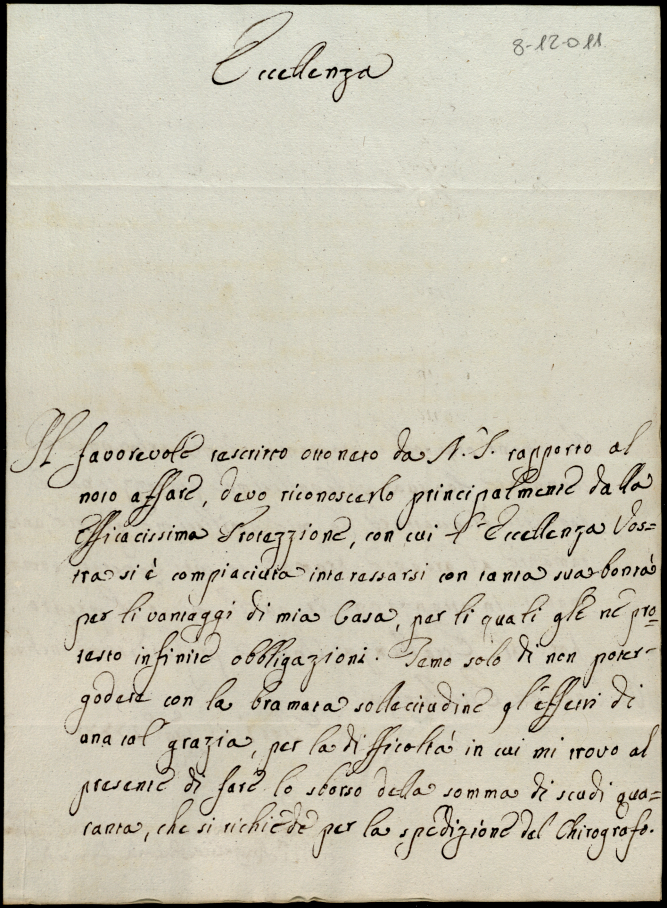 8-12-011
Eccellenza
Il favorevole rescritto ottenuto da N.S. rapporto al
noto affare, devo riconoscerlo principalmente dalla
Efficacissima Protezzione, con cui l'Eccellenza Vos=
tra si è compiaciuta interessarsi con tanta sua bontà
per li vantaggi di mia Casa, per li quali glie ne pro=
testo infinite obbligazioni. Temo solo di non poter
godere con la bramata sollecitudine gl'effetti di
una tal grazia, per la difficoltà in cui mi trovo al
presente di fare lo sborso della somma di scudi qua=
ranta, che si richiede per la spedizione del Chirografo.